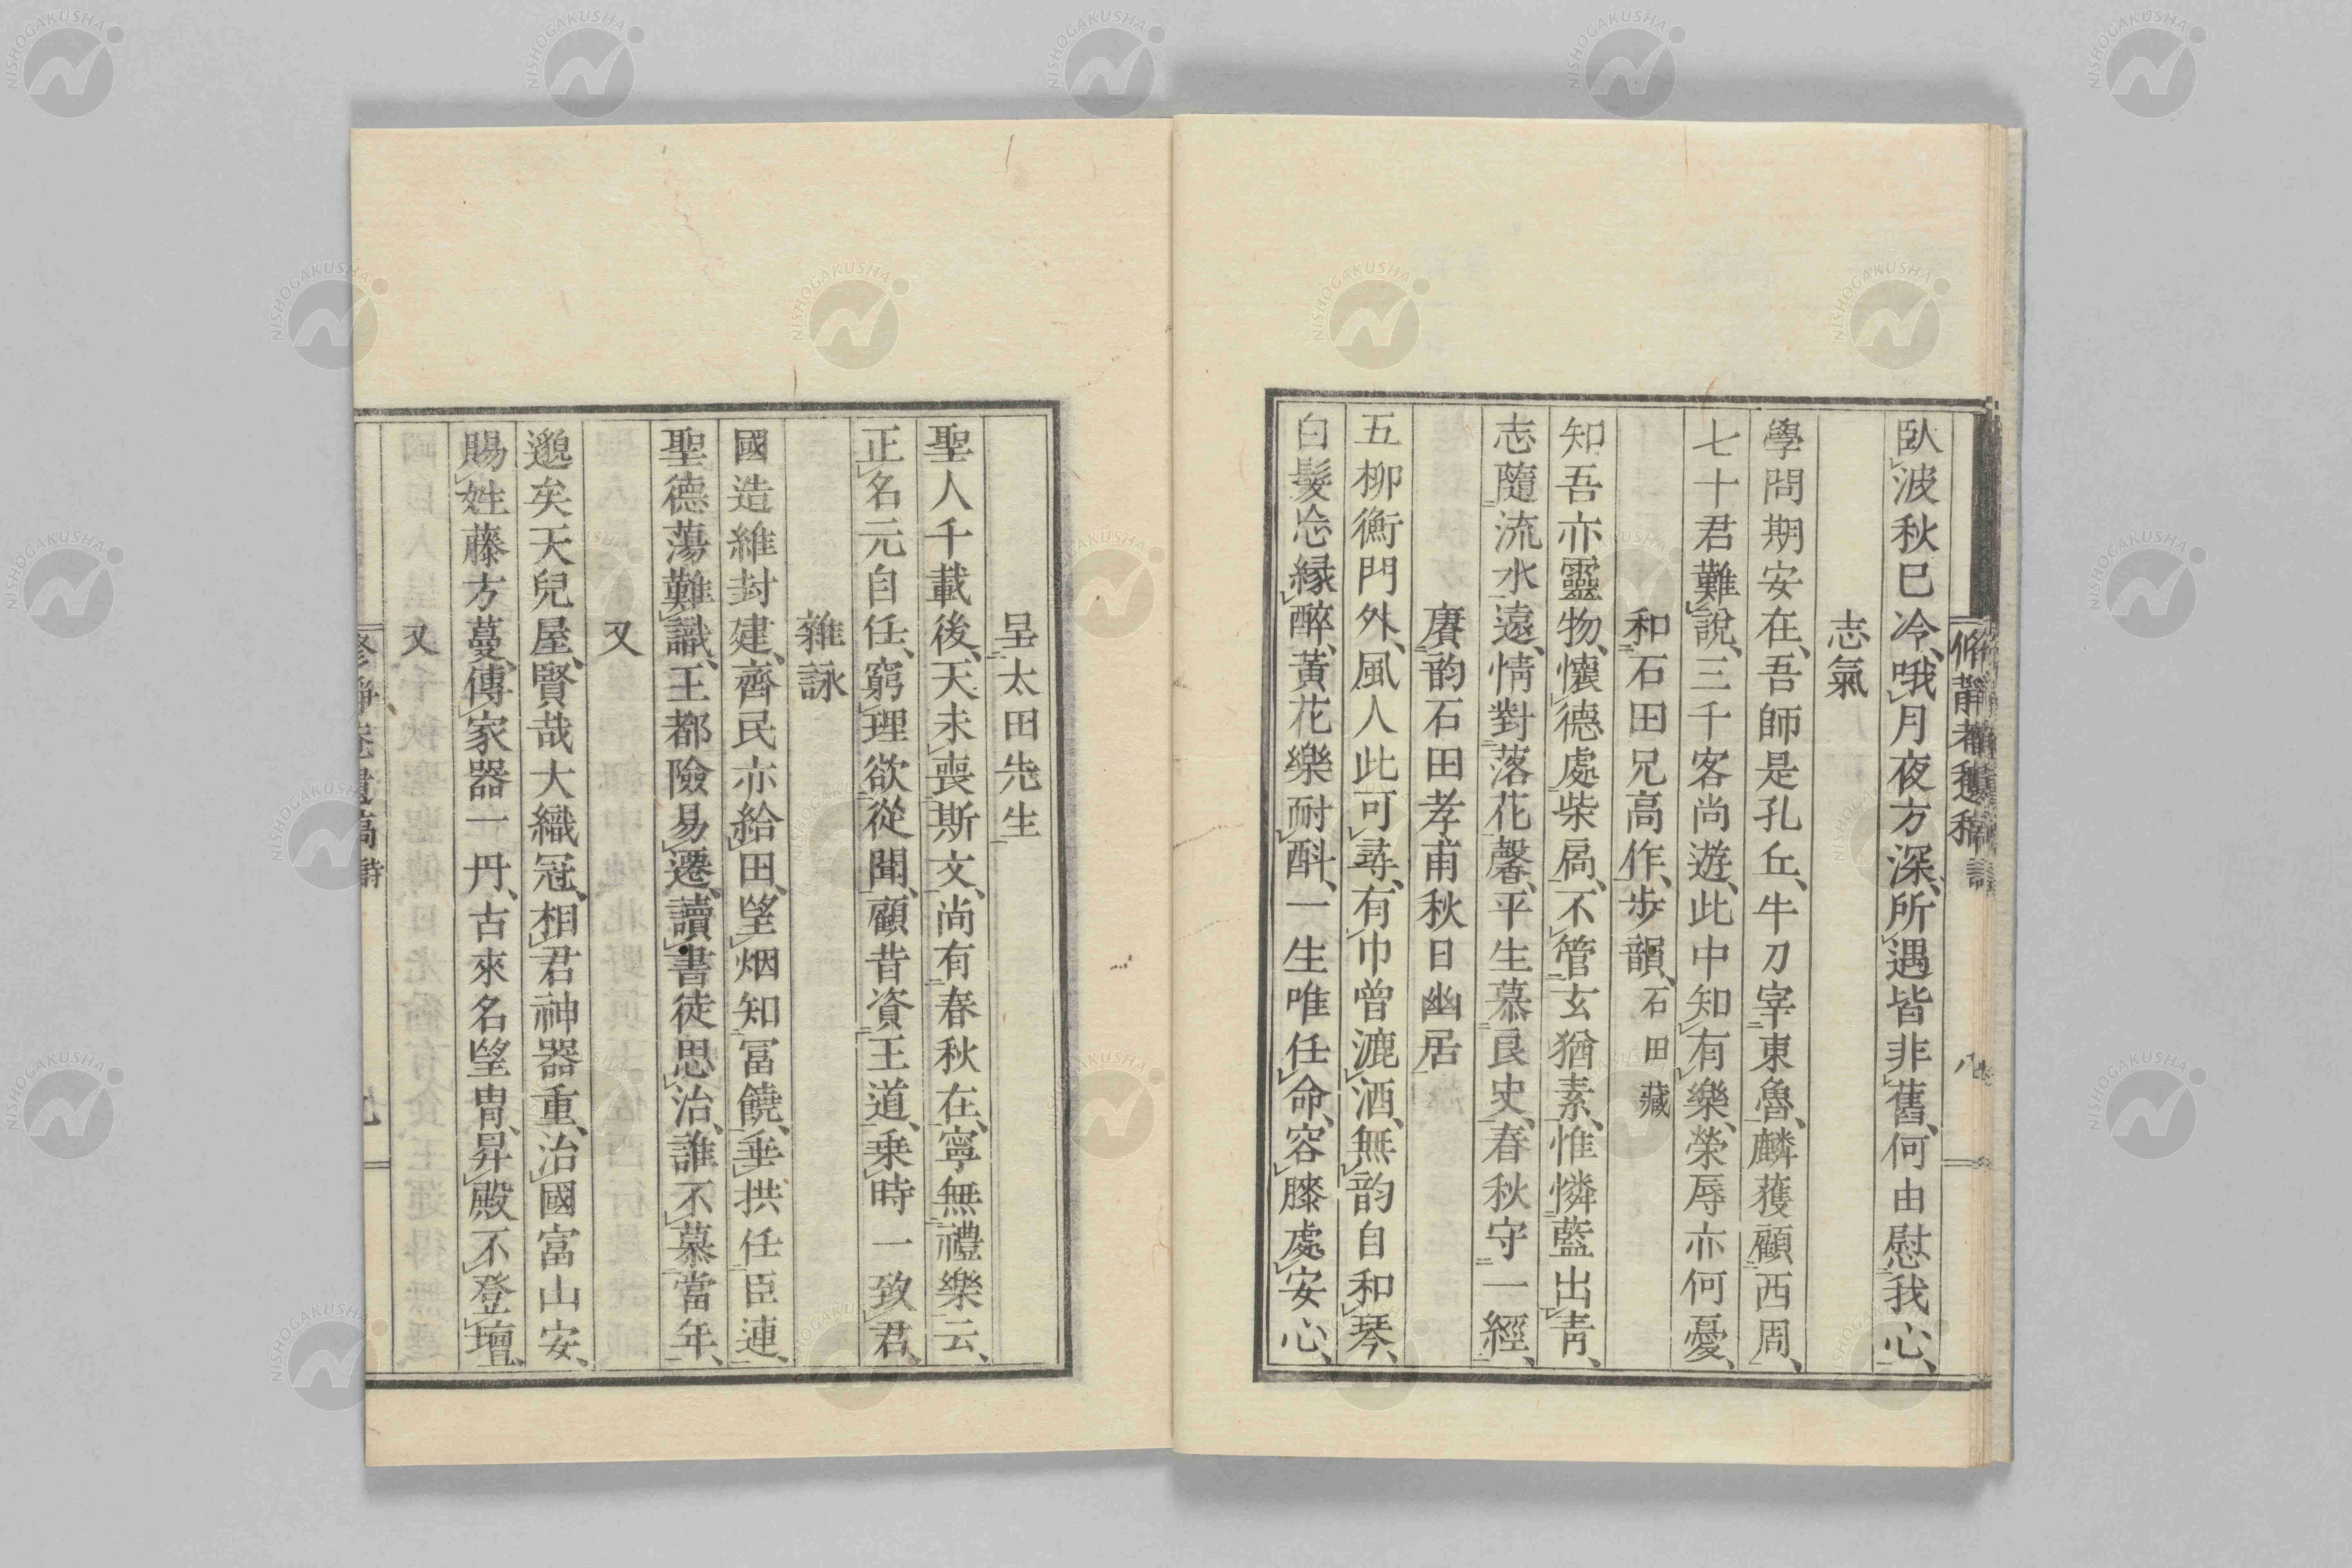 臥波秋已冷、哦月夜方深、所遇皆非舊、何由慰我心、
志氣
學問期安在、吾師是孔丘、牛刀宰東魯、麟獲顧西周、
七十君難說、三千客尚遊、此中知有樂、榮辱亦何憂、
和石田兄高作、步韻、石田藏
知吾亦靈物、懷德處柴扃、不管玄猶素、惟憐藍出靑、
志隨流水遠、情對落花馨、平生慕良史、春秋守一經、
賡韵石田孝甫秋日幽居
五柳衡門外、風人此可尋、有巾曾漉酒、無韵自和琴、
白髮忘緣醉、黃花樂耐斟、一生唯任命、容膝處安心、
呈太田先生
聖人千載後、天未喪斯文、尚有春秋在、寧無禮樂云、
正名元自任、窮理欲從聞、顧昔資王道、乗時一致君、
雜詠
國造維封建、齊民亦給田、望烟知富饒、垂拱任臣連、
聖德蕩難識、王都險易遷、讀書徒思治、誰不慕當年、
又
邈矣天兒屋、賢哉大織冠、相君神器重、治國富山安、
賜姓藤方蔓、傳家器一丹、古來名望胄、昇殿不登壇、
又
NISHOGAKUSHA